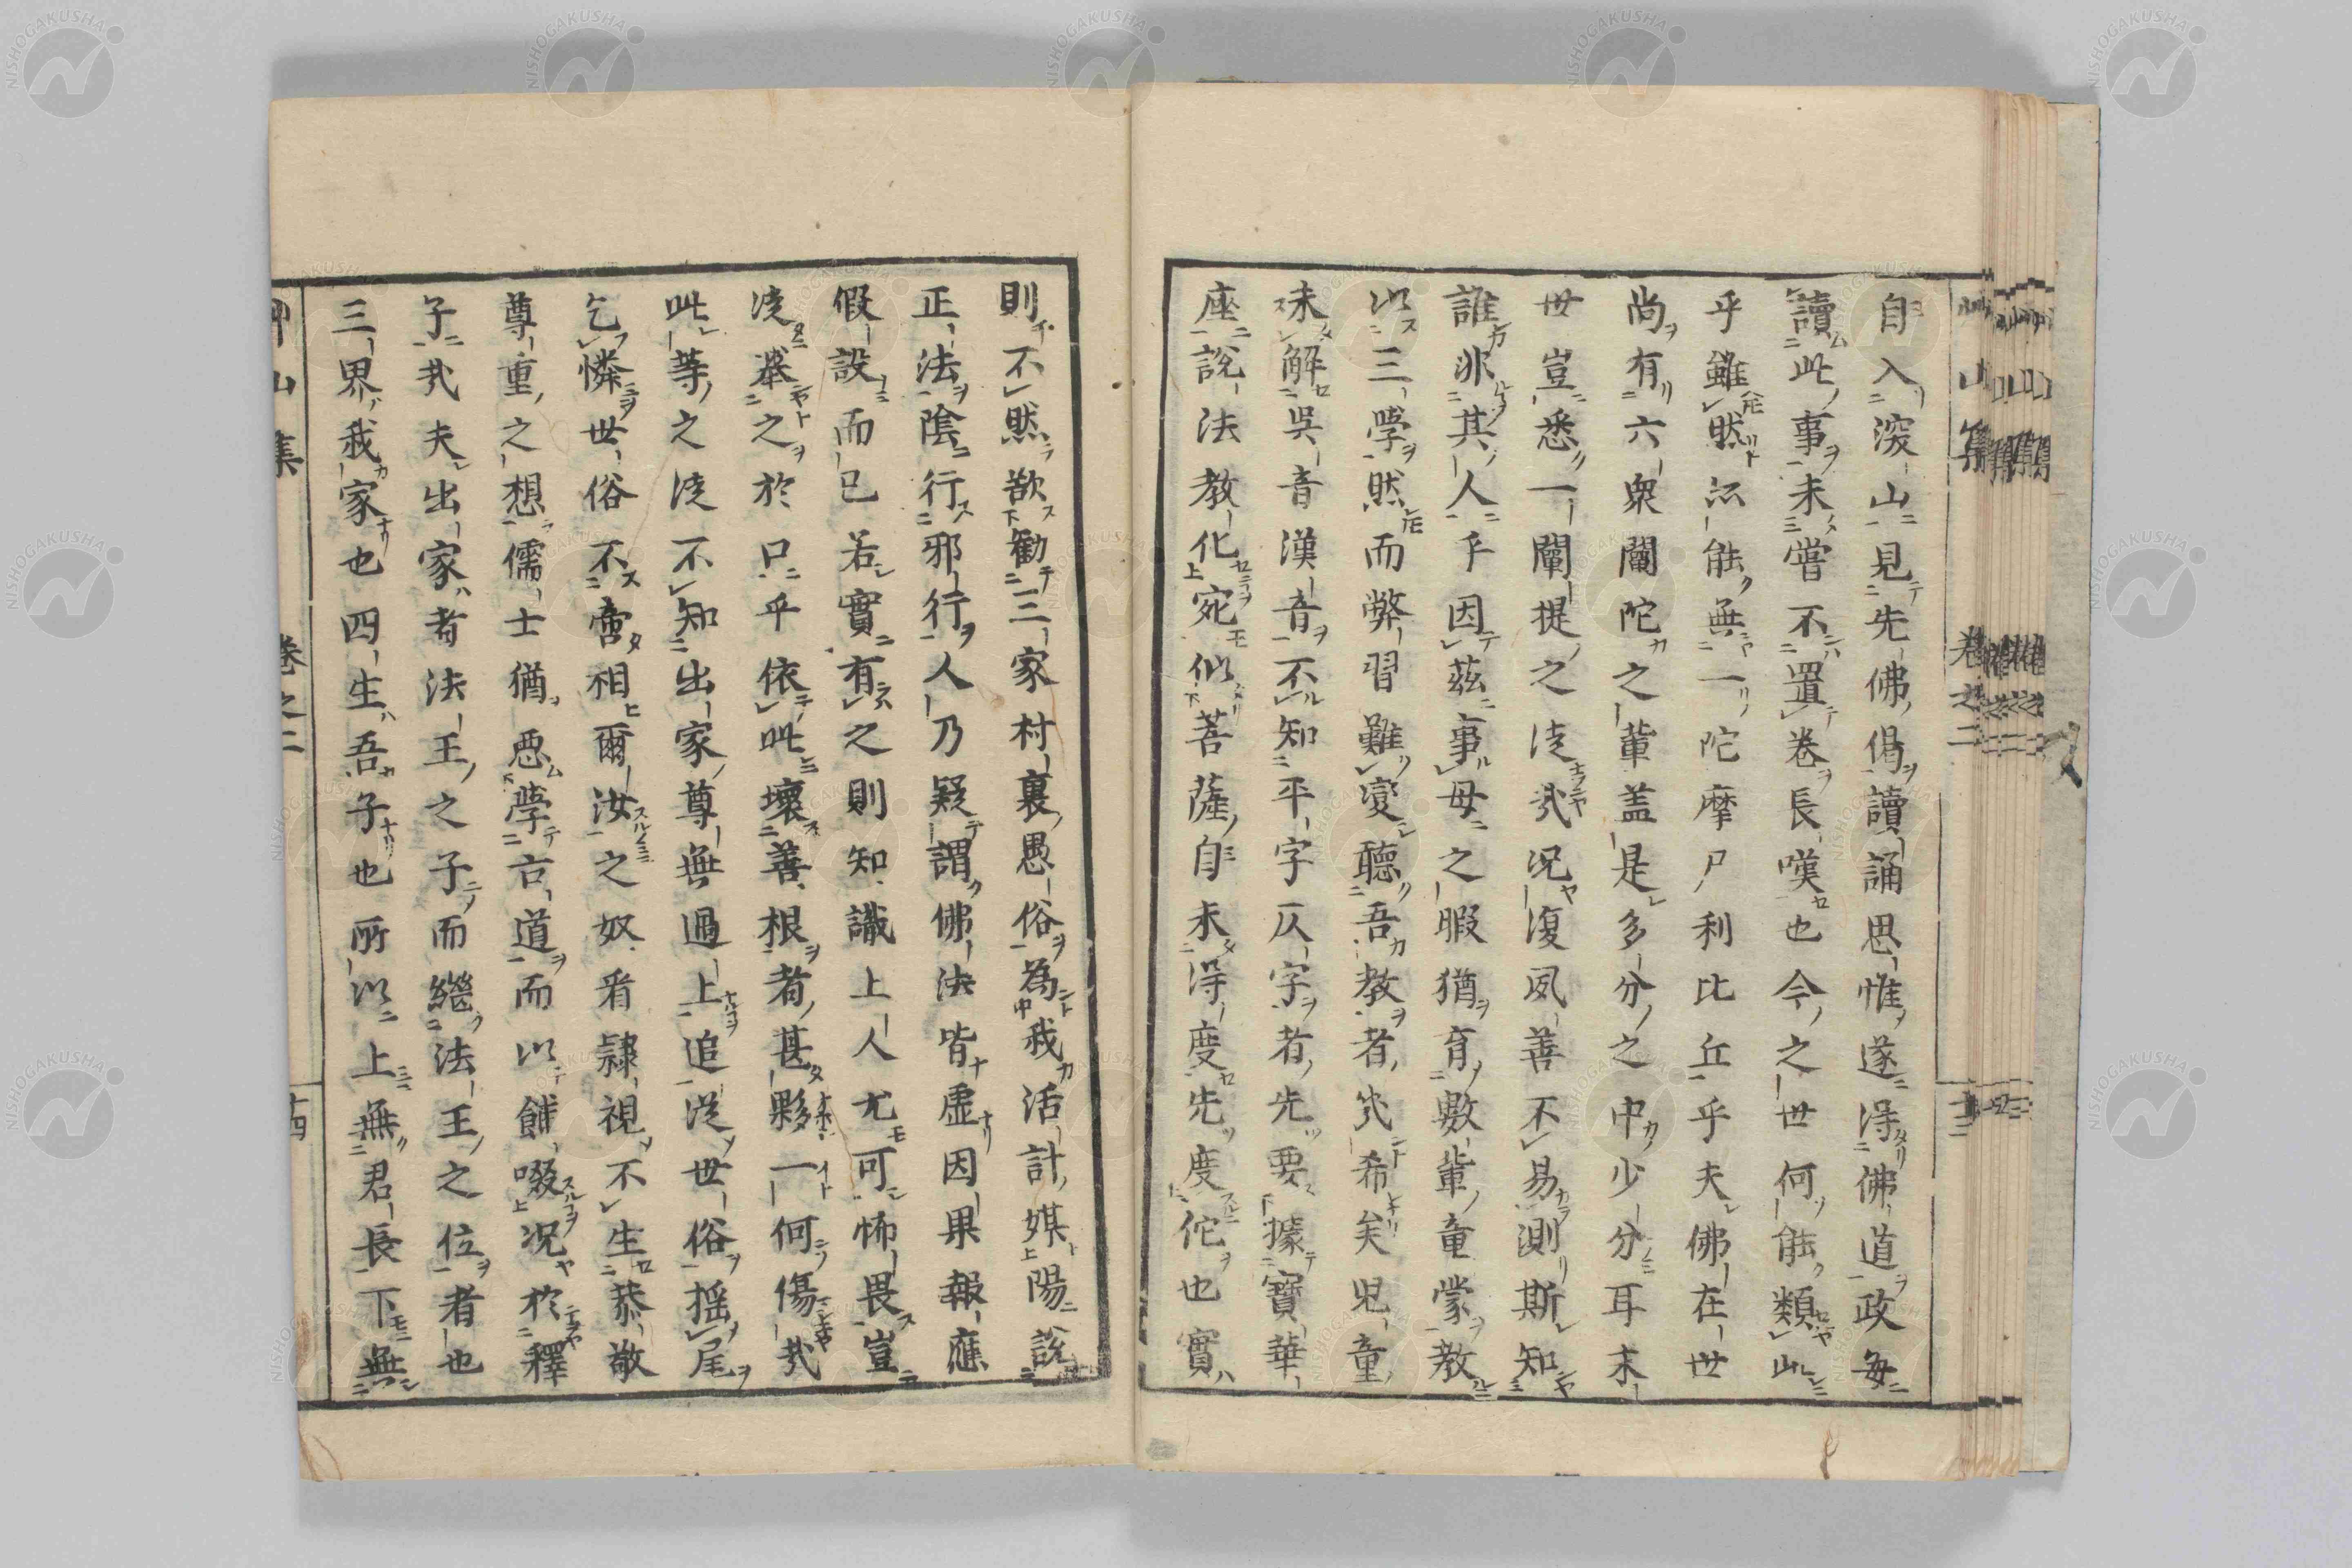 自入深山見先佛偈讀誦思惟遂得佛道政每
讀此事未嘗不置卷長嘆也今之世何能類此
乎雖然□能無一陀摩尸利比丘乎夫佛在世
尚有六衆闡陀之輩盖是多分之中少分耳末
世豈悉一闡提之徒哉況復夙善不易測斯知
誰非其人乎因茲事母之暇猶育數輩童蒙教
以三學然而弊習難變聽吾教者尤希矣児童
未解吳音漢音不知平字仄字者先要據寶華
座說法教化宛似菩薩自未得度先度佗也實
則不然欲勸三家村裏愚俗為我活計媒陽說
正法陰行邪行人乃疑謂佛決皆虛因果報應
假設而已若實有之則知識上人尤可怖畏豈
徒舉之於口乎依此壞善根者甚夥一何傷哉
此等之徒不知出家尊無過上追從世俗搖尾
乞憐世俗不啻相爾汝之奴看隸視不生恭敬
尊重之想儒士猶惡學古道而以餔啜況於釋
子哉夫出家者法王之子而繼法王之位者也
三界我家也四生吾子也所以上無君長下無
艸山集 卷之二 十三
艸山集 卷之二 十四
NISHOGAKUSHA